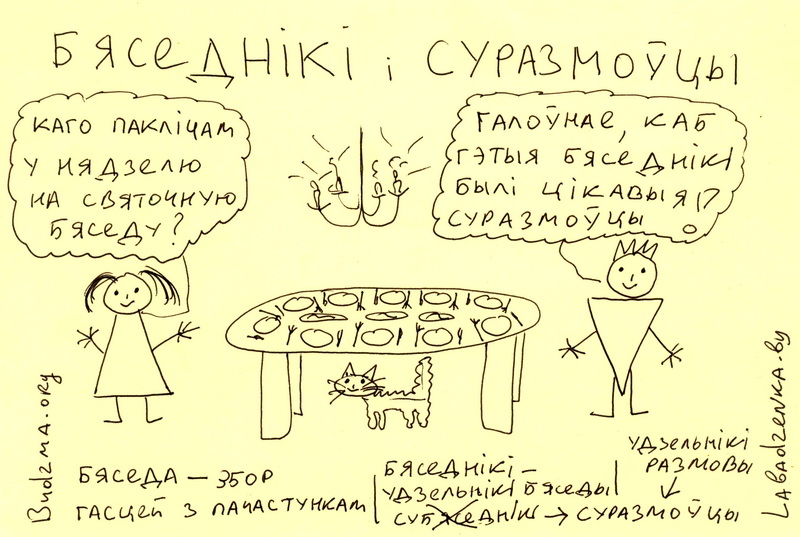 БЯСЕДНІКІ і СУРАЗМОЎЦЫ
КАГО ПАКЛІЧАМ
У НЯДЗЕЛЮ
НА СВЯТОЧНУЮ
БЯСЕДУ?
ГАЛОЎНАЕ, КАБ
ГЭТЫЯ БЯСЕДНІКІ
БЫЛІ ЦІКАВЫЯ
СУРАЗМОЎЦЫ!?
Budzma.org
Labadzenka.by
БЯСЕДА — ЗБОР
ГАСЦЕЙ З ПАЧАСТУНКАМ
БЯСЕДНІКІ –
УДЗЕЛЬНІКІ БЯСЕДЫ
СУБЯСЕДНІК → СУРАЗМОЎЦЫ
УДЗЕЛЬНІКІ
РАЗМОВЫ